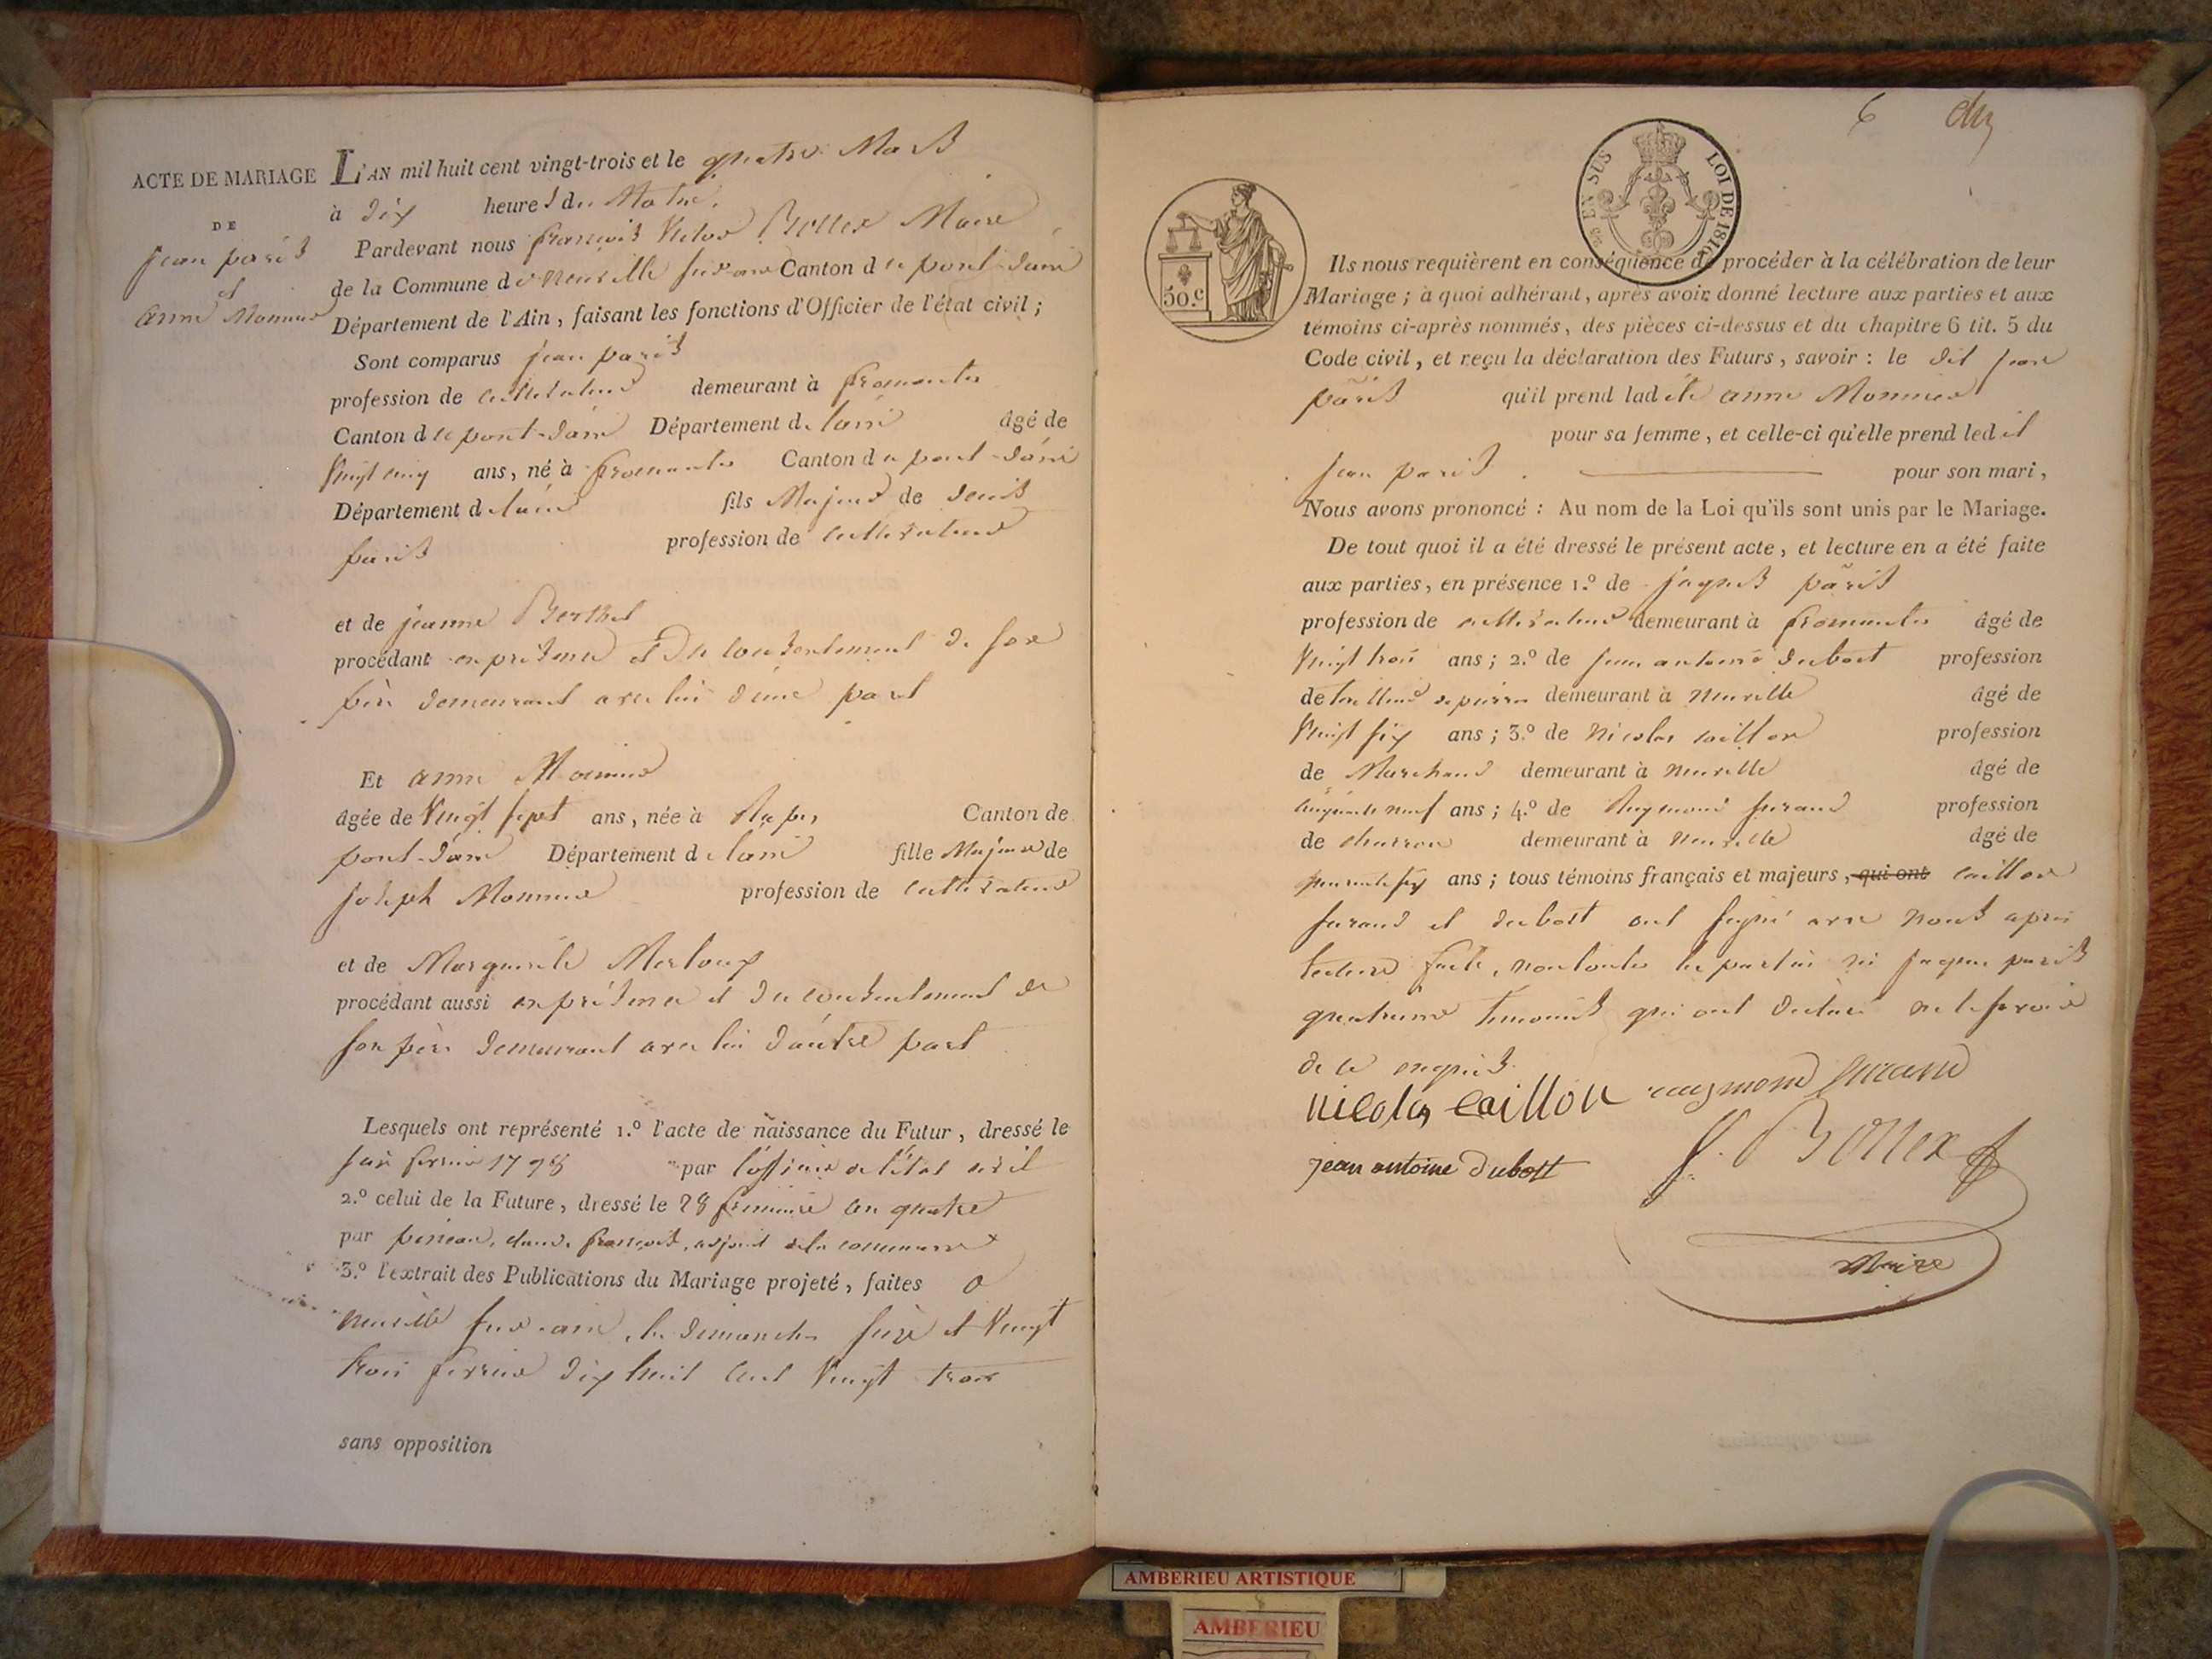 ACTE DE MARIAGE
DE
jean paris
et
anne Monnier
L'AN mil huit cent vingt-trois et le quatre Mars
à dix heures du Matin,
Pardevant nous françois Victor Bollex Maire
de la Commune de neuville sur ain Canton de pont-dain
Département de l'Ain, faisant les fonctions d'Officier de l'état civil ;
Sont comparus jean paris
profession de cultivateur demeurant à fromentes
Canton de pont-dain Département de lain âgé de
Vingt cinq ans, né à fromentes Canton de pont-dain
Département de lain fils Majeur de denis
paris profession de cultivateur
et de jeanne Berthet
procédant en présence et du consentement de son
père demeurant avec lui d'une part
Et anne Monnier
âgée de Vingt sept ans, née à Canton de
pont-dain Département de lain fille Majeure de
joseph Monnier profession de cultivateur
et de Marguerite Merloux
procédant aussi en présence et du consentement de
son père demeurant avec lui d'autre part
Lesquels ont représenté 1.º l'acte de naissance du Futur, dressé le
février 1798 par l'officier de l'état civil
2.º celui de la Future, dressé le 28 frimaire an quatre
par claude françois, adjoint de la commune
3.º l'extrait des Publications du Mariage projeté, faites a
neuville sur-ain, les dimanches seize et Vingt
trois février dix huit cent Vingt trois
sans opposition
6 dix
50.c
25 EN SUS LOI DE 1816
Ils nous requièrent en conséquence de procéder à la célébration de leur
Mariage ; à quoi adhérant, après avoir donné lecture aux parties et aux
témoins ci-après nommés, des pièces ci-dessus et du chapitre 6 tit. 5 du
Code civil, et reçu la déclaration des Futurs, savoir : le dit jean
paris qu'il prend ladite anne Monnier
pour sa femme, et celle-ci qu'elle prend ledit
jean paris pour son mari,
Nous avons prononcé : Au nom de la Loi qu'ils sont unis par le Mariage.
De tout quoi il a été dressé le présent acte, et lecture en a été faite
aux parties, en présence 1.º de jaques paris
profession de cultivateur demeurant à fromentes âgé de
Vingt trois ans ; 2.º de jean antoine dubost profession
de tailleur de pierre demeurant à neuville âgé de
Vingt six ans ; 3.º de nicolas caillon profession
de Marchand demeurant à neuville âgé de
cinquante neuf ans ; 4.º de Raymond furand profession
de charron demeurant à neuville âgé de
ans ; tous témoins français et majeurs, qui ont caillon
furand et dubost ont signé avec nous après
lecture faite, non toutes les parties ni jaques paris
témoins qui ont déclaré ne le savoir
de ce enquis.
nicolas caillon raymond furand
jean antoine Dubost f. Bollex
Maire
AMBERIEU ARTISTIQUE
AMBERIEU